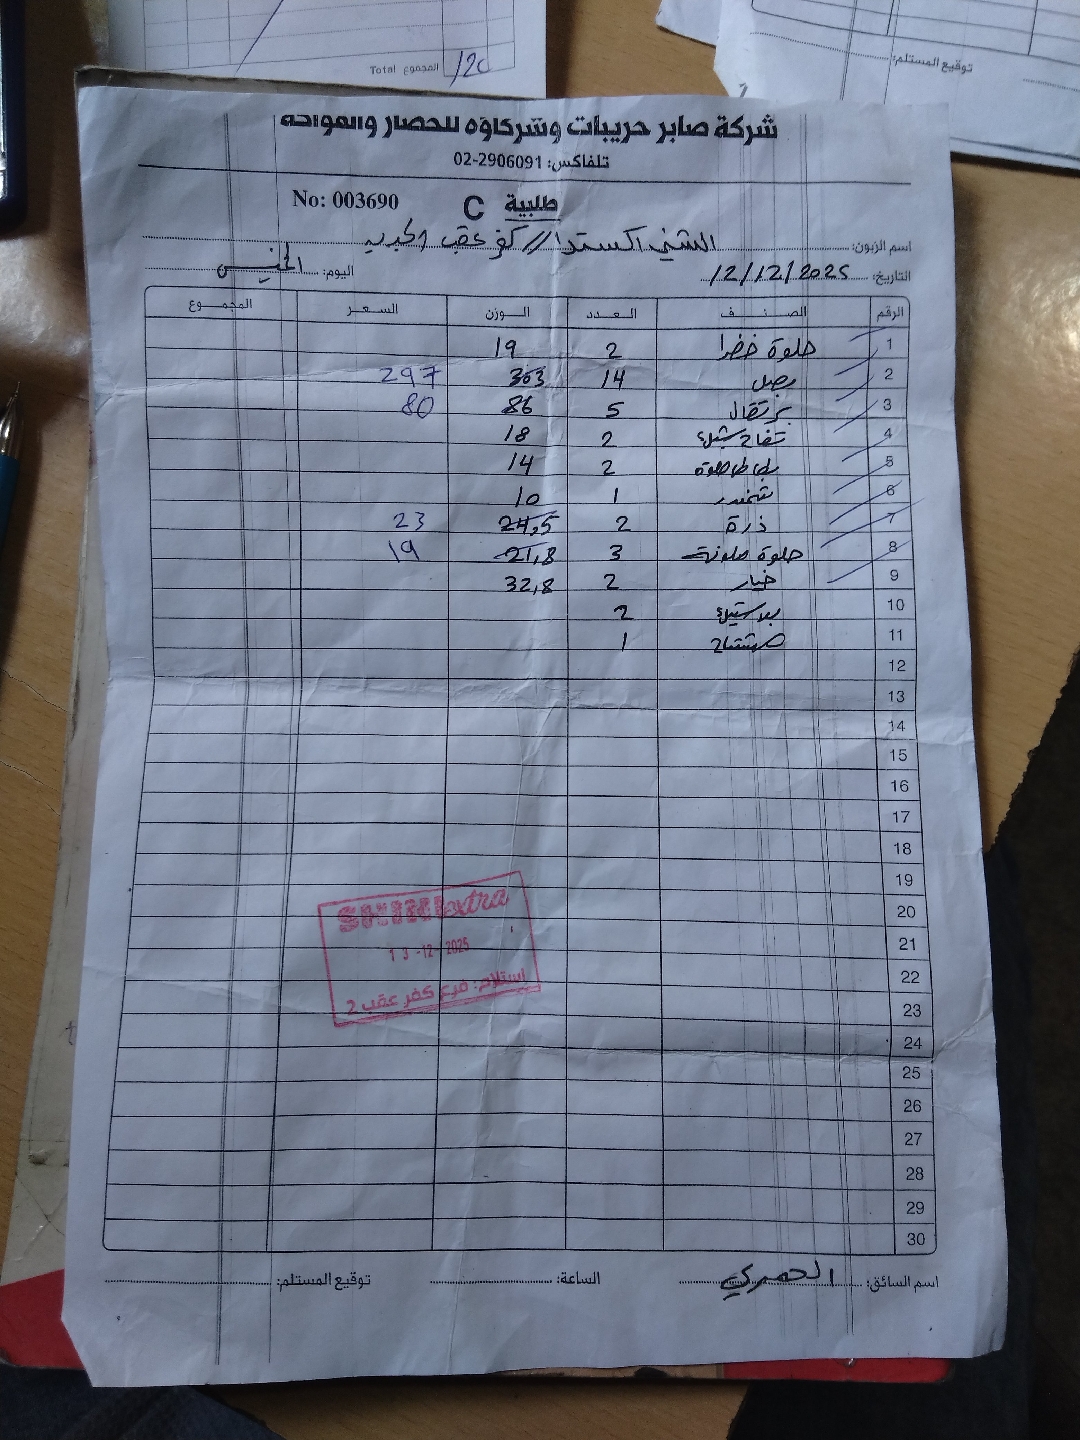 Total المجموع 120
توقيع المستلم:
شركة صابر حريبات وشركاؤه للخضار والفواكه
تلفاكس: 02-2906091
No: 003690 طلبية C
اسم الزبون: الشني اكسترا // كفر عقب
التاريخ: 12/12/2025 اليوم: الخميس
الرقم الصنف العدد الوزن السعر المجموع
1 حلوة خضرا 2 19
2 بصل 14 303 297
3 برتقال 5 86 80
4 تفاح 2 18
5 بطاطا حلوة 2 14
6 شمندر 1 10
7 ذرة 2 24,5 23
8 حلوة ملونة 3 21,8 19
9 خيار 2 32,8
10 2
11 1
12
13
14
15
16
17
18
19
20
21
22
23
24
25
26
27
28
29
30
SHINI extra
13-12-2025
استلام: فرع كفر عقب 2
اسم السائق: الحمري الساعة: توقيع المستلم: